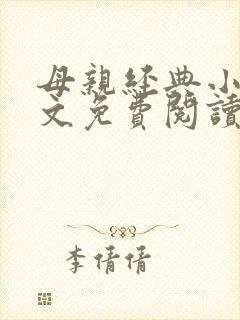 母親經典小
文免費閱讀
李倩倩